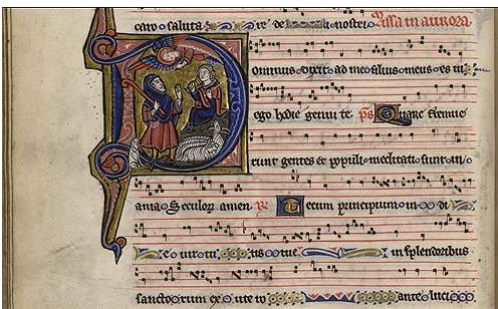 caro saluta re de nostri issa in aurora
Dominus dixit ad me filius meus es tu
ego hodie genui te ps Quare fremue
runt gentes et populi meditati sunt in
ania Seculor amen Tecum principium in di
e uirtutis tue in splendoribus
sanctorum ex ute ro ante lucı